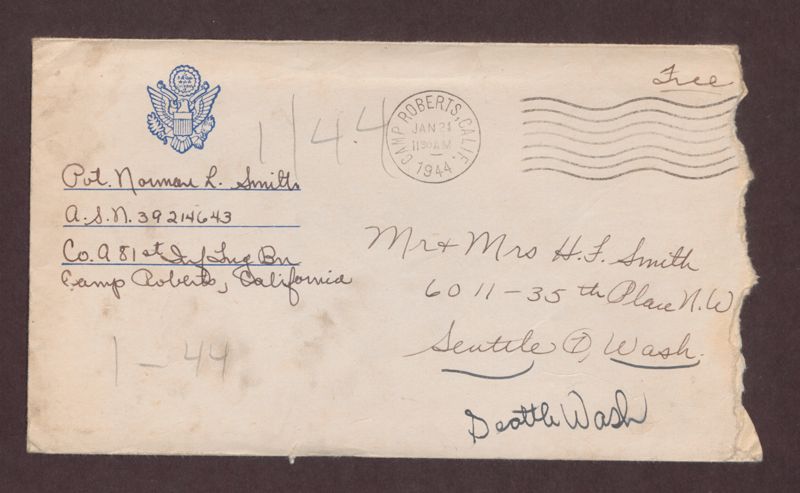 Free
CAMP ROBERTS, CALIF.
JAN 21
11 30 AM
1944
1/4.4
Pvt. Norman L. Smith
A.S.N. 39214643
Co. A 81st Inf Trg Bn
Camp Roberts, California
Mr & Mrs H. F. Smith
6011 - 35th Place N.W
Seattle 7, Wash.
1 - 44
Seattle Wash